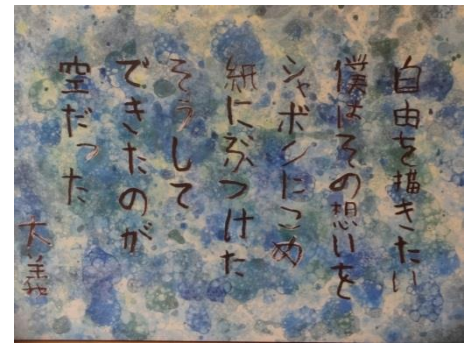 自由を描きたい
僕はその想いを
シャボンにこめ
紙にぶつけた
そうして
できたのが
空だった
大義